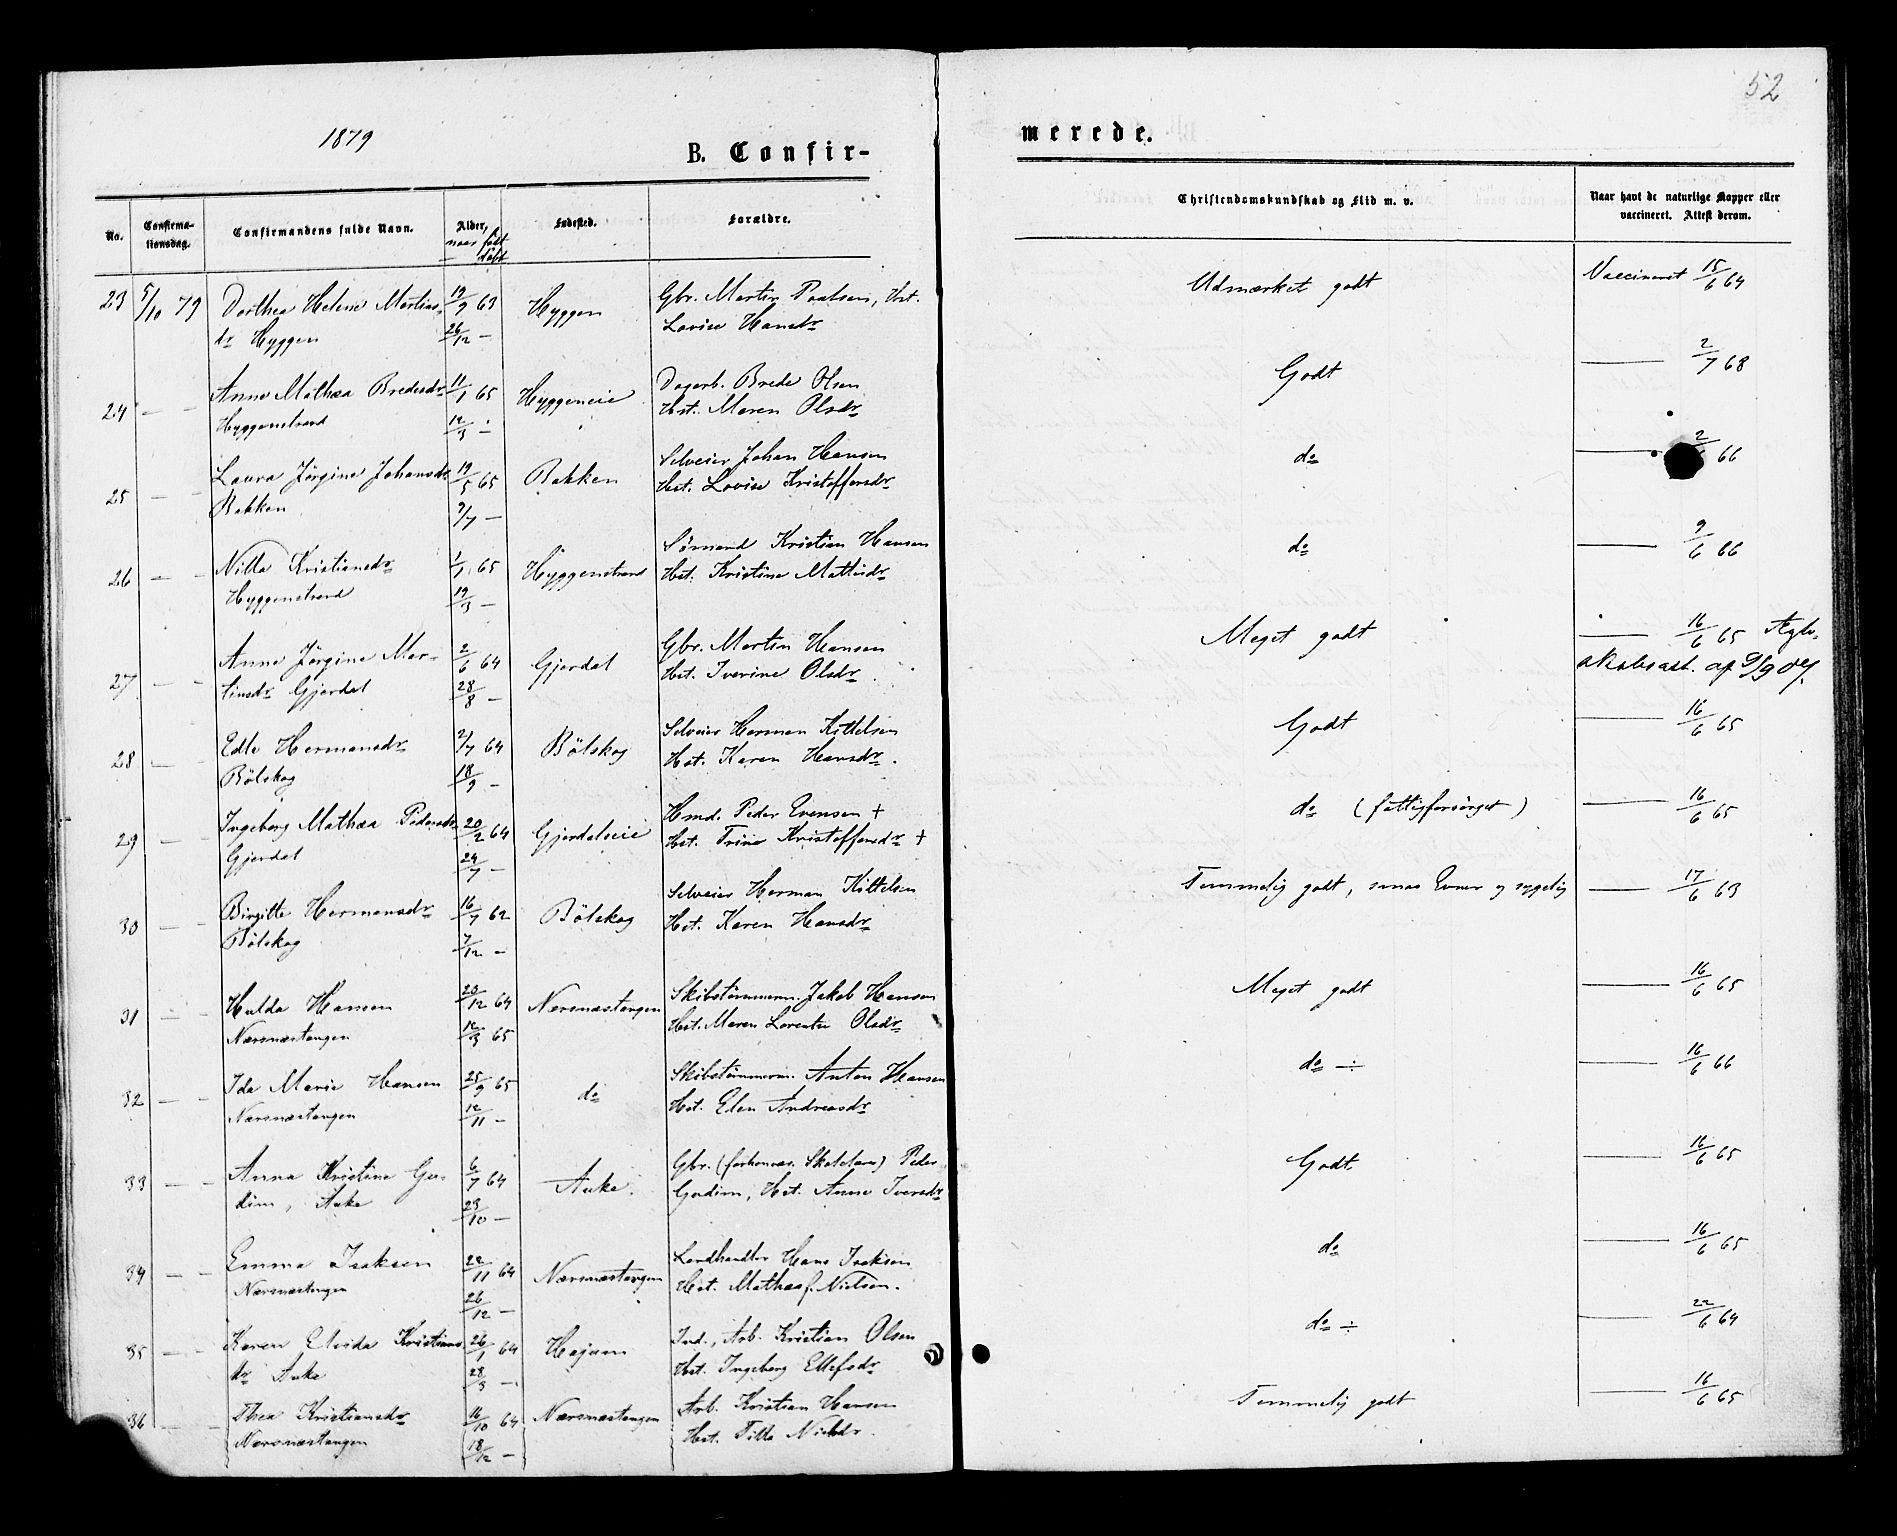 52
1879
B. Confir-
merede.
No.
Confirma-
tionsdag.
Confirmandens fulde Navn.
Alder,
naar født
døbt
Fødested.
Forældre.
Christendomskundskab og Flid m. v.
Naar havt de naturlige Kopper eller
vaccineret. Attest derom.
23 5/10 79 Dorthea Helene Martins- 19/9 63 Hyggen Gbr. Martin Paulsen, Hst. Udmærket godt Vaccineret 15/6 64
dr Hyggen 26/12 — Lovise Hansdr
24 — — Anne Mathea Bredesdr 11/1 65 Hyggeneie Dagarb. Brede Olsen Godt — 2/7 68
Hyggenstrand 12/3 — Hst. Maren Olsdr
25 — — Laura Jørgine Johansdr 19/5 65 Bakken Selveier Johan Hansen do — 66
Bakken 9/7 — Hst. Lovise Kristoffersdr
26 — — Nilla Kristiansdr 1/1 65 Hyggenstrand Sømand Kristian Hansen do — 9/6 66
Hyggenstrand 19/3 — Hst. Kristine Mathisdr
27 — — Anne Jørgine Mar- 2/6 64 Gjerdal Gbr. Martin Hansen Meget godt — 16/6 65 Ægte-
tinsdr Gjerdal 28/8 — Hst. Iverine Olsdr skabsast. af 9/9 04.
28 — — Edle Hermansdr 2/7 64 Bölskog Selveier Herman Kittelsen Godt — 16/6 65
Bölskog 18/9 — Hst. Karen Hansdr.
29 — — Ingeborg Mathea Pedersdr 20/2 64 Gjerdalseie Hmd. Peder Evensen + do (fattigforsørget) — 16/6 65
Gjerdal 24/7 — Hst. Trine Kristoffersdr +
30 — — Birgitte Hermansdr 16/7 62 Bölskog Selveier Herman Kittelsen Temmelig godt, smaa Evner og sygelig — 17/6 63
Bölskog 7/12 — Hst. Karen Hansdr
31 — — Hulda Hansen 20/12 64 Nærsnæstangen Skibstømmerm. Jakob Hansen Meget godt — 16/6 65
Nærsnæstangen 12/3 65 Hst. Maren Lorentse Olsdr
32 — — Ida Marie Hansen 25/9 65 do Skibstømmerm. Anton Hansen do ÷ — 16/6 66
Nærsnæstangen 12/11 — Hst. Elen Andreasdr
33 — — Anna Kristine Gu- 6/7 64 Auke. Gbr. (forhenvær. Skolelærer) Peder Godt — 16/6 65
dim, Auke 23/10 — Gudim, Hst. Anne Iversdr
34 — — Emma Isaksen 22/11 64 Nærsnæstangen Landhandler Hans Isaksen do — 16/6 65
Nærsnæstangen 26/12 — Hst. Mathea f. Nielsen.
35 — — Karen Elvida Kristians 26/1 64 Ind., Arb. Kristian Olsen do ÷ — 22/6 64
dr Auke 28/3 — Hst. Ingeborg Ellefsdr
36 — — Thea Kristiansdr 16/10 64 Nærsnæstangen Arb. Kristian Hansen Temmelig godt — 16/6 65
Nærsnæstangen 18/12 — Hst. Nielsdr.